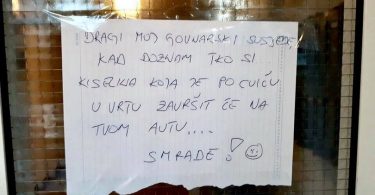 DRAGI MOJ GOVNARSKI SUSJEDE,
KAD DOZNAM TKO SI
KISELINA KOJA JE PO CVIĆU
U VRTU ZAVRŠIT ĆE NA
TVOM AUTU....
SMRADE!